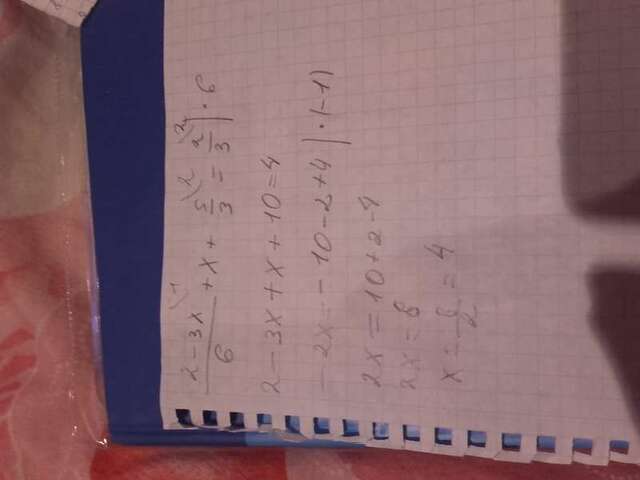 (2-3x)/6 + x + 5/3 = 2/3 | · 6
2-3x+x+10=4
-2x=-10-2+4 | · (-1)
2x=10+2-4
2x=8
x=8/2=4